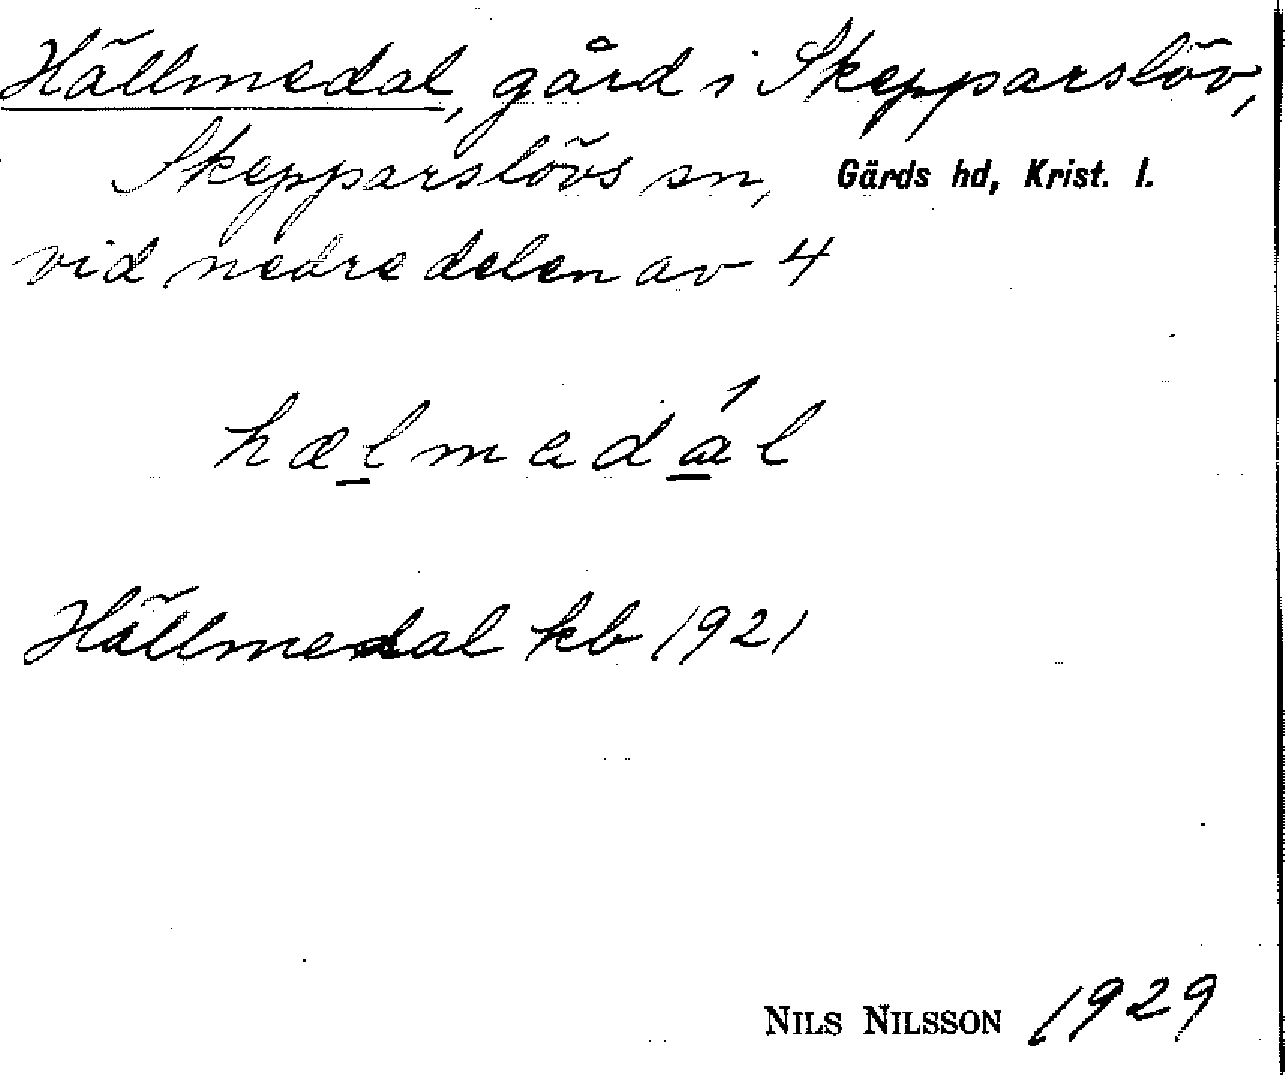 Hällmedal, gård i Skepparslöv,
Skepparslövs sn, Gärds hd, Krist. l.
vid nedre delen av 4
hælmadál
Hällmedal kb 1921
NILS NILSSON 1929